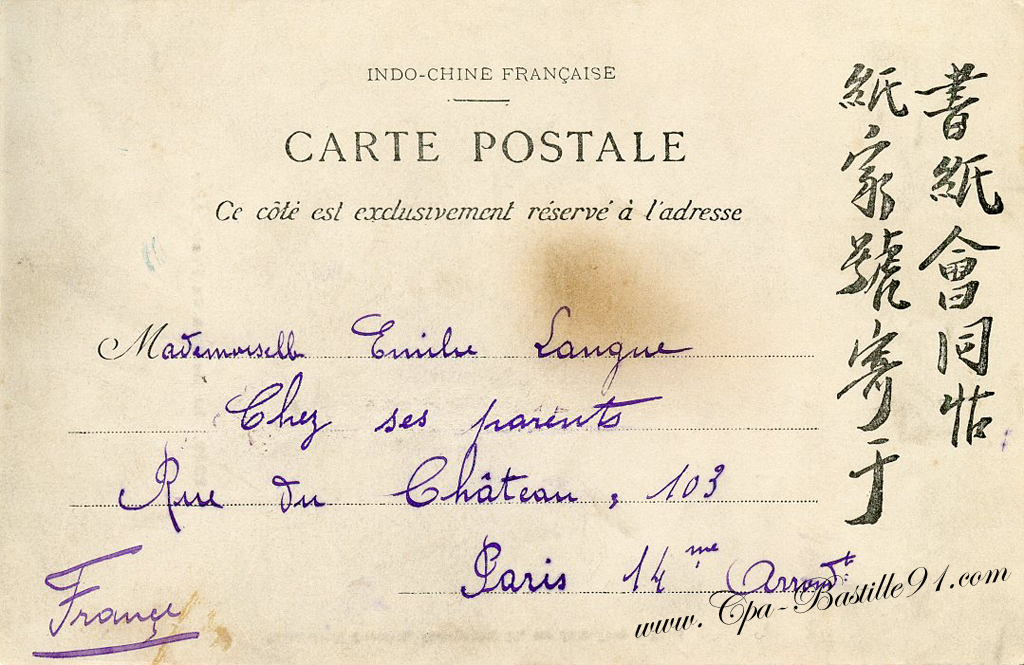 INDO-CHINE FRANÇAISE
CARTE POSTALE
Ce côté est exclusivement réservé à l'adresse
Mademoiselle Emilie Langue
Chez ses parents
Rue du Château, 103
Paris 14me Arrondt
France
書紙會同帖
紙家號寄于
www.Cpa-Bastille91.com